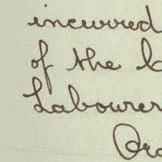 incurred
of the
Labourer